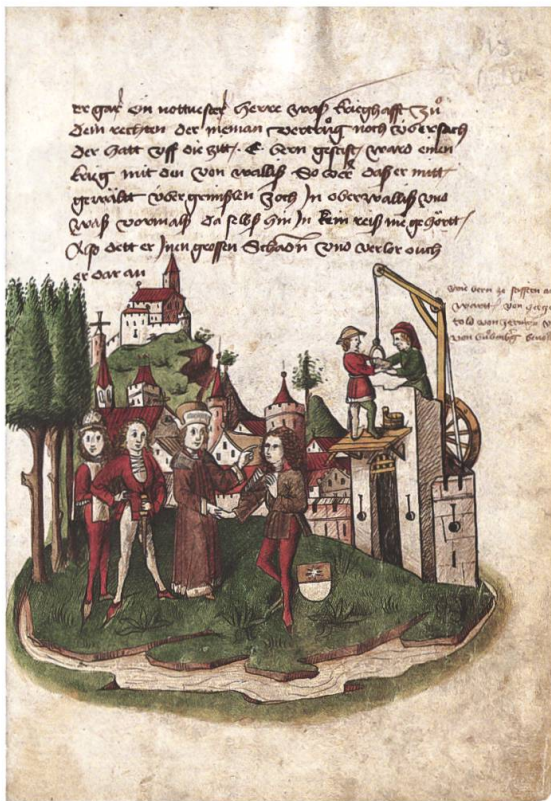 er gar ein nottvester herre waß krieghafft zů
dem rechten der nieman vertrůg noch übersach
der hatt vff die zitt. E. bern gestift ward einen
krieg mit den von walliß So daß er mitt
gewallt über grimßlen zoch In oberwalliß vnd
waß vormalß da selbß hin In kein reiß nie gehörtt
Also dett er Inen grossen Schadn vnd verlor ouch
er dar an
bern ze
wartt von
told von zeringen
von bůbenberg